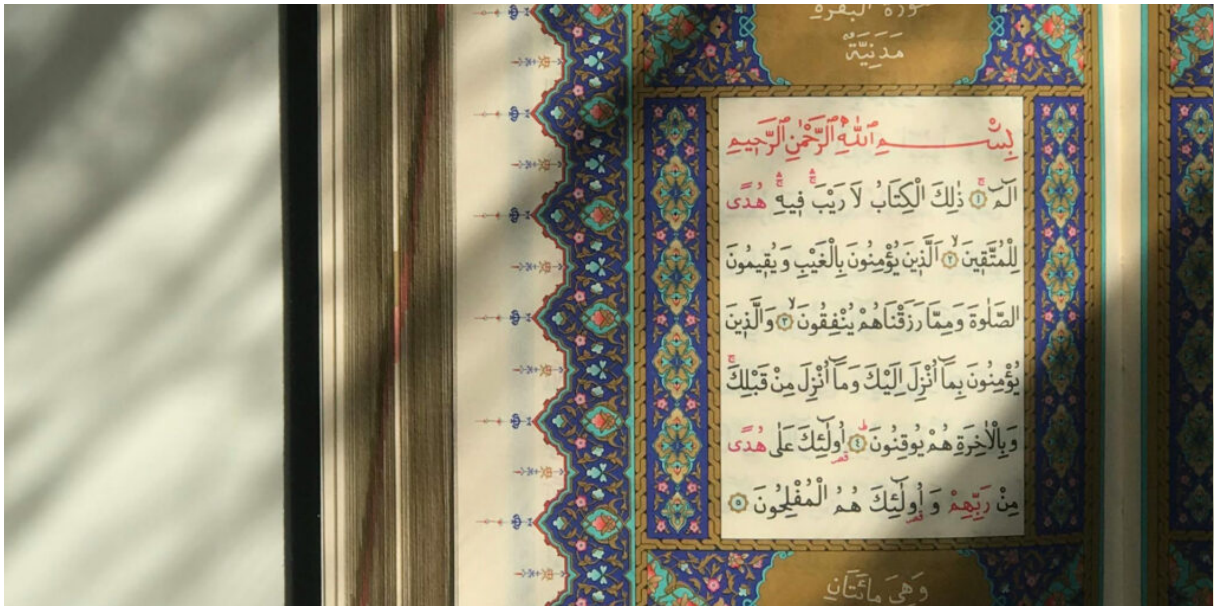 سُورَةُ الْبَقَرَةِ
مَدَنِيَّةٌ
بِسْمِ اللّٰهِ الرَّحْمٰنِ الرَّحِيمِ
الٓمٓ ۚ ﴿١﴾ ذٰلِكَ الْكِتَابُ لَا رَيْبَ ۛ فِيهِ ۛ هُدًى
لِلْمُتَّقِينَ ۙ ﴿٢﴾ اَلَّذِينَ يُؤْمِنُونَ بِالْغَيْبِ وَيُقِيمُونَ
الصَّلٰوةَ وَمِمَّا رَزَقْنَاهُمْ يُنْفِقُونَ ۙ ﴿٣﴾ وَالَّذِينَ
يُؤْمِنُونَ بِمَٓا اُنْزِلَ اِلَيْكَ وَمَٓا اُنْزِلَ مِنْ قَبْلِكَ ۚ
وَبِالْاٰخِرَةِ هُمْ يُوقِنُونَ ۜ ﴿٤﴾ اُو۬لٰٓئِكَ عَلٰى هُدًى
مِنْ رَبِّهِمْ وَاُو۬لٰٓئِكَ هُمُ الْمُفْلِحُونَ ﴿٥﴾
وَهِيَ مِائَتَانِ